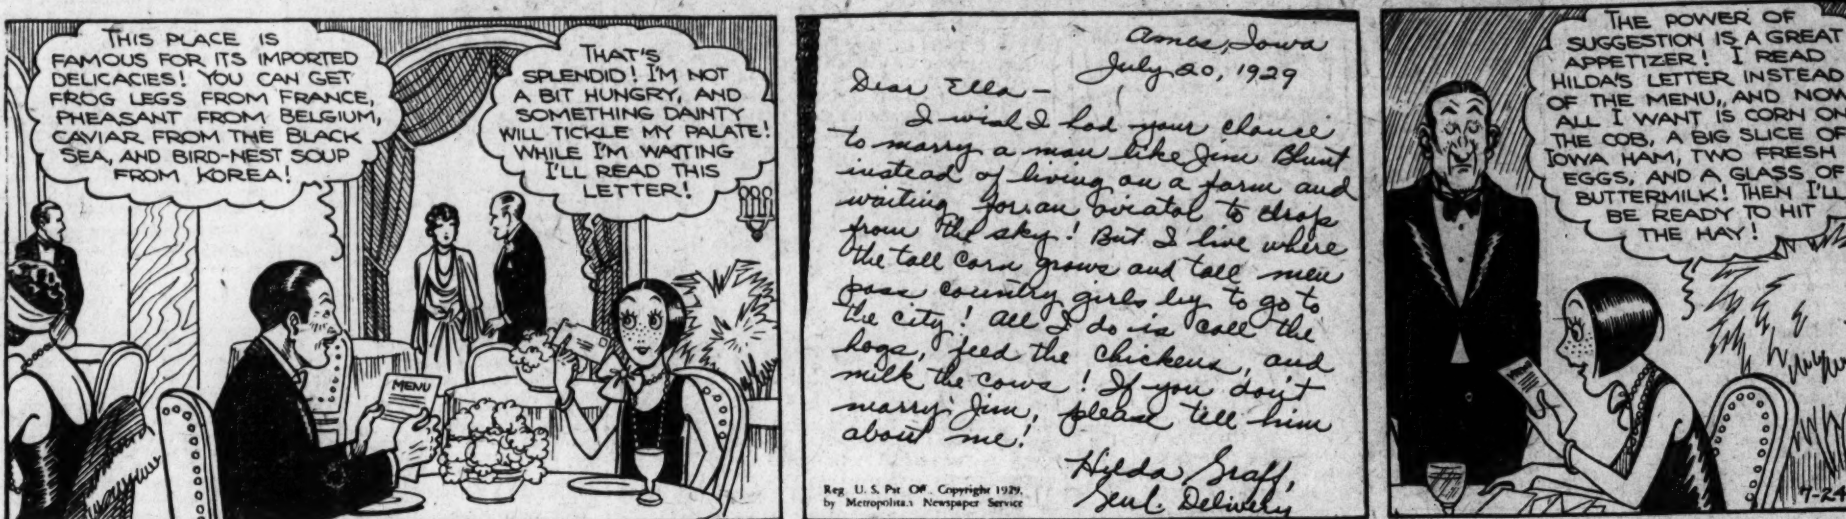 THIS PLACE IS
FAMOUS FOR ITS IMPORTED
DELICACIES! YOU CAN GET
FROG LEGS FROM FRANCE,
PHEASANT FROM BELGIUM,
CAVIAR FROM THE BLACK
SEA, AND BIRD-NEST SOUP
FROM KOREA!
THAT'S
SPLENDID! I'M NOT
A BIT HUNGRY, AND
SOMETHING DAINTY
WILL TICKLE MY PALATE!
WHILE I'M WAITING
I'LL READ THIS
LETTER!
MENU
Ames, Iowa
July 20, 1929
Dear Ella—
I wish I had your chance
to marry a man like Jim Blunt
instead of living on a farm and
waiting for an aviator to drop
from the sky! But I live where
the tall corn grows and tall men
pass country girls by to go to
the city! All I do is call the
hogs, feed the chickens, and
milk the cows! If you don't
marry Jim, please tell him
about me!
Hilda Graff,
Genl. Delivery
Reg. U. S. Pat. Off., Copyright 1929,
by Metropolitan Newspaper Service
THE POWER OF
SUGGESTION IS A GREAT
APPETIZER! I READ
HILDA'S LETTER INSTEAD
OF THE MENU, AND NOW
ALL I WANT IS CORN ON
THE COB, A BIG SLICE OF
IOWA HAM, TWO FRESH
EGGS, AND A GLASS OF
BUTTERMILK! THEN I'LL
BE READY TO HIT
THE HAY!